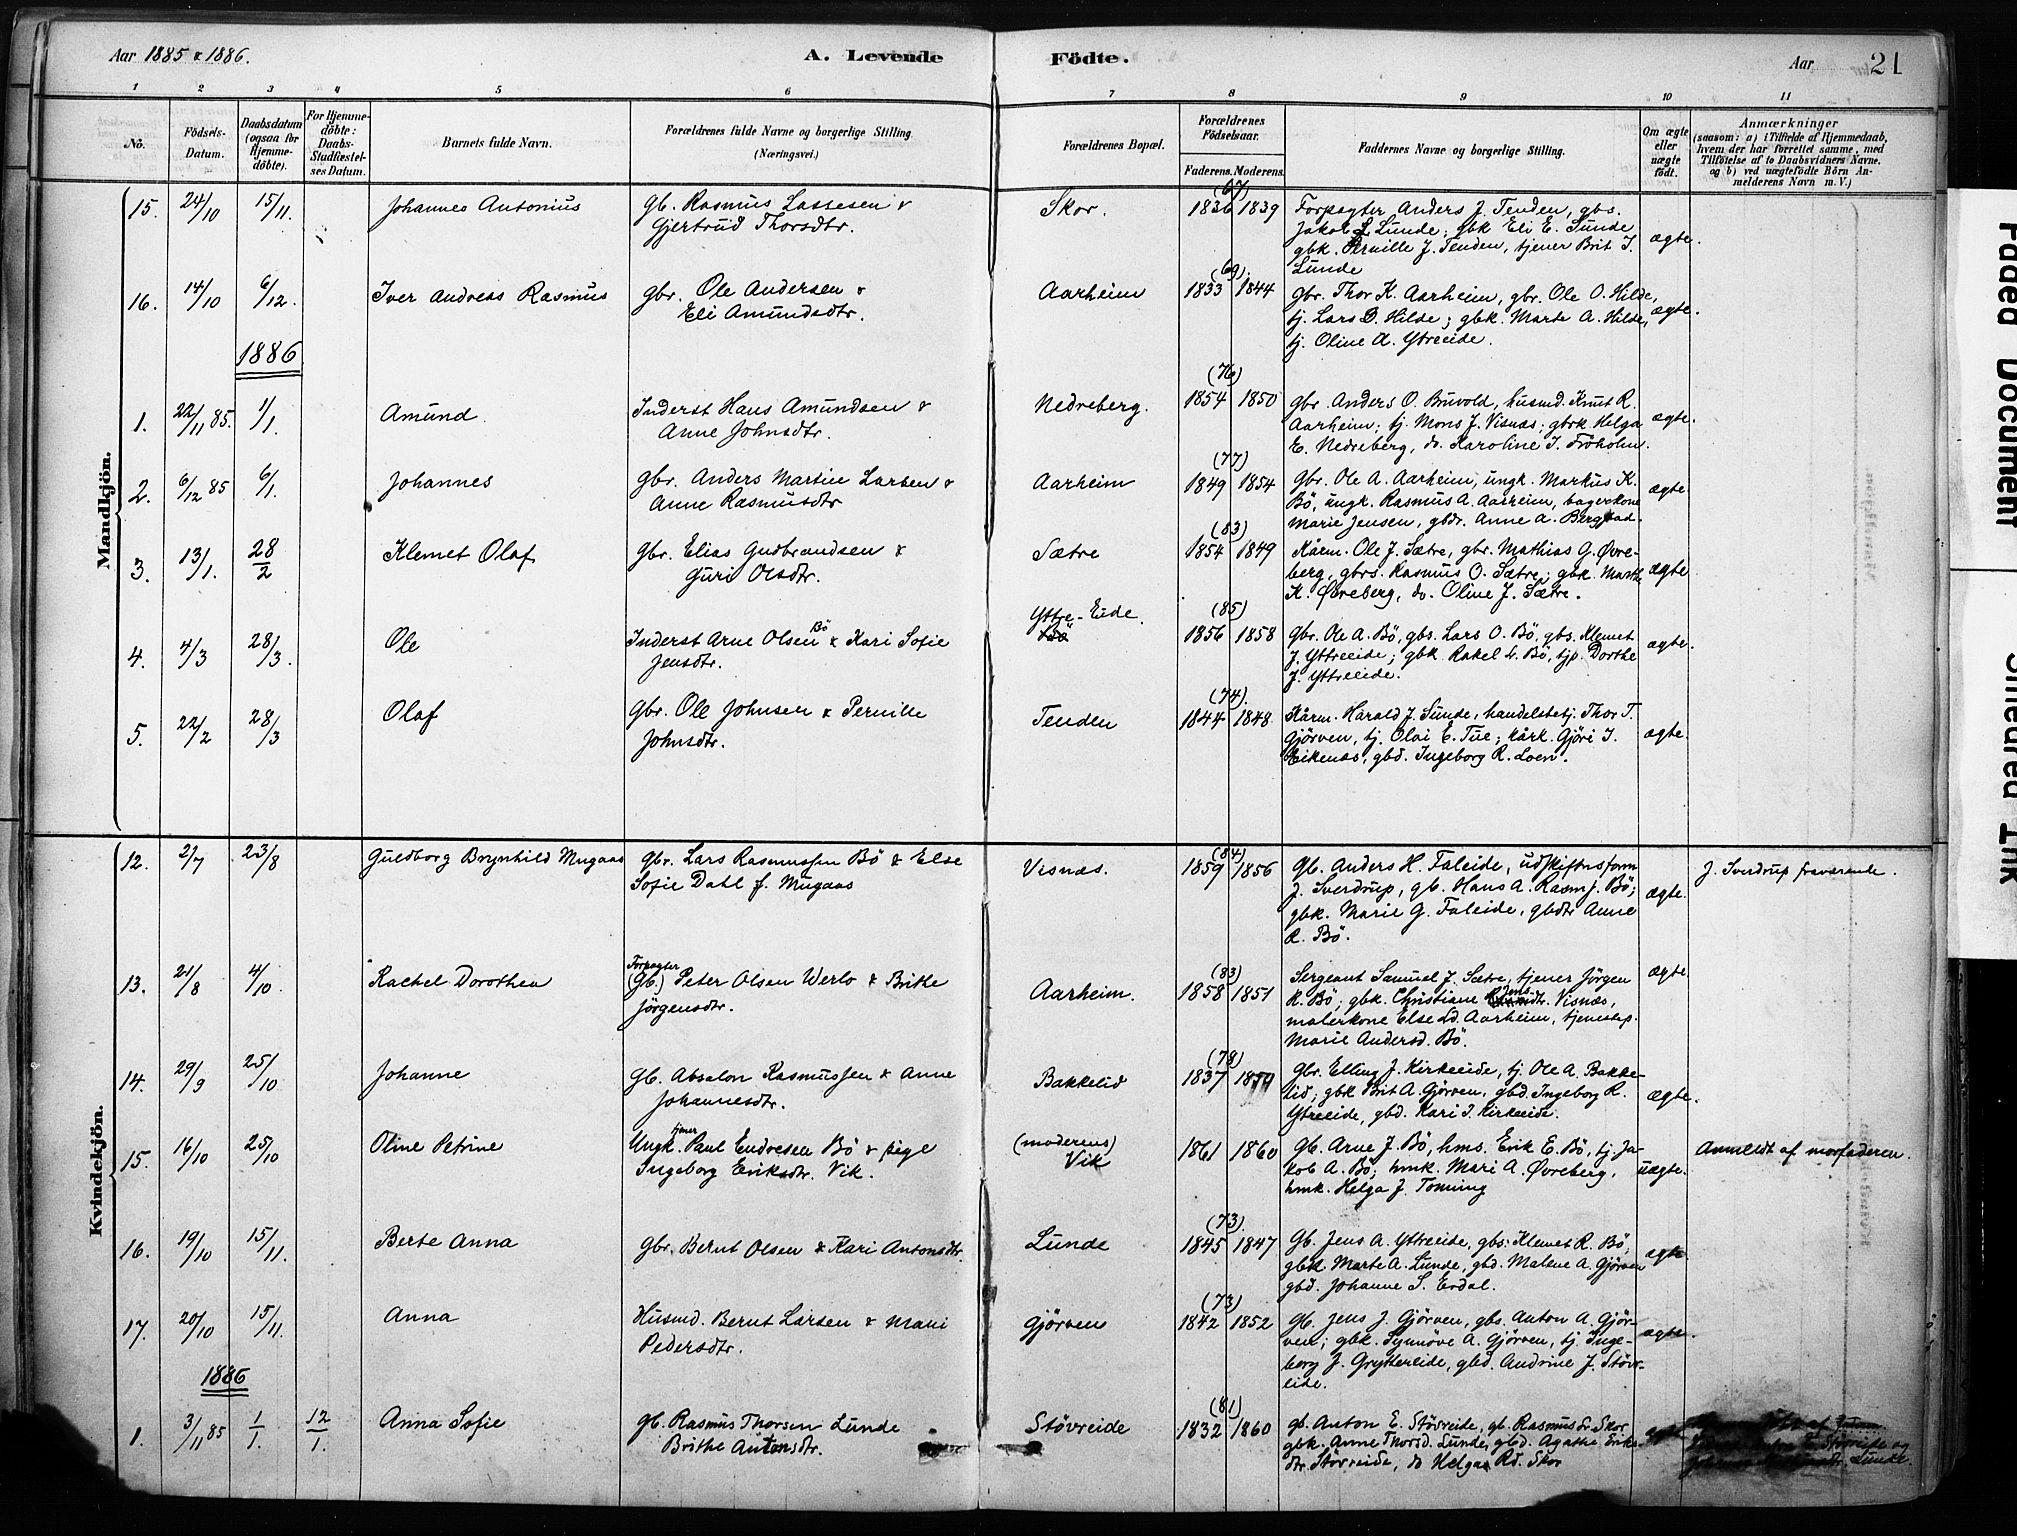 Aar 1885 & 1886.
A. Levende
Födte.
Aar
21
1 2 3 4 5 6 7 8 9 10 11
No.
Födsels-Datum.
Daabsdatum (ogsaa for Hjemme-döbte).
For Hjemme-döbte: Daabs-Stadfæstel-ses Datum.
Barnets fulde Navn.
Forældrenes fulde Navne og borgerlige Stilling. (Næringsvei.)
Forældrenes Bopæl.
Forældrenes Födselsaar.
Faderens. Moderens.
Faddernes Navne og borgerlige Stilling.
Om ægte eller uægte født.
Anmærkninger
(saasom: a) i Tilfælde af Hjemmedaab, hvem der har forrettet samme, med Tilföielse af to Daabsvidners Navne. og b) ved uægtefödte Börn Anmelderens Navn m. V.)
Mandkjön.
15. 24/10 15/11. Johannes Antonius gb. Rasmus Lassesen & Skor. (67) 1836 1839 Forpagter Anders J. Tenden, gbs.
Gjertrud Thorsdtr. Jakob L. Lunde; gbk Eli E. Lunde
gbk. Pernille J. Tenden, tjener Brit J. ægte.
Lunde
16. 14/10 6/12. Iver Andreas Rasmus gbr. Ole Andersen & Aarheim (69) 1833 1844 Gbr. Thor K. Aarheim, gbr. Ole O. Hilde,
Eli Amundsdtr. tj. Lars D. Hilde; gbk. Marte A. Hilde, ægte.
tj. Oline A. Ytreeide.
1886
1. 22/11 85. 1/1. Amund Inderst Hans Amundsen & Nedreberg. (76) 1854 1850 gbr. Anders O. Bruvold, husmd. Knut R. ægte.
Anne Johnsdtr. Aarheim; tj. Mons J. Visnæs; gbrk Helga
E. Nedreberg, do. Karoline J. Fröholm.
2. 6/12 85 6/1. Johannes gbr. Anders Martin Larsen & Aarheim (77) 1849 1854 Gbr. Ole A. Aarheim, ungk. Markus K. ægte
Anne Rasmusdtr Bö, ungk. Rasmus A. Aarheim, bagerkone
Marie Jensen, gbdr. Anne A. Bergstad.
3. 13/1. 28/2 Klemet Olaf Gbr. Elias Gudbrandsen & Sætre (83) 1854 1849 Kårm. Ole J. Sætre, gbr. Mathias G. Øvre-
Guri Olsdtr. berg, gbrs. Rasmus O. Sætre; gbk. Marthe ægte
K. Øvreberg, do. Oline J. Sætre.
4. 4/3 28/3. Ole Inderst Arne Olsen Bö & Kari Sofie Yttre-Eide. Bö (85) 1856 1858 Gbr. Ole A. Bö, gbs. Lars O. Bö, gbs. Klemet ægte.
Jensdtr. J. Yttreeide; gbk. Rakel L. Bö, tjp. Dorthe
J. Yttreeide.
5. 22/2 28/3 Olaf Gbr. Ole Johnsen & Pernille Tenden (74) 1844 1848 Kårm. Harald J. Lunde, handelsbetj. Thor T.
Johnsdtr. Gjörven, tj. Olai E. Tue; kårk. Gjöri J. ægte.
Eikenæs, gbd. Ingeborg R. Loen.
Kvindekjön.
12. 2/7 23/8 Guldborg Brynhild Mugaas Gbr. Lars Rasmussen Bö & Else Visnæs. (84) 1859 1856 Gb. Anders H. Faleide, udskiftnsform J. Sverdrup fraværende.
Sofie Dahl f. Mugaas J. Sverdrup, gb. Hans A. Rasmj. Bö; ægte.
gbk. Marie G. Faleide, gbdtr Anne
R. Bö.
13. 21/8 4/10. Rachel Dorothea Forpagter (Gb.) Peter Olsen Werlo & Brithe Aarheim. (83) 1858 1851 Sergeant Samuel J. Sætre, tjener Jörgen ægte
Jörgensdtr. R. Bö; gbk. Christiane Jens-dtr. Visnæs,
malerkone Else Ld. Aarheim, tjenestep.
Marie Andersd. Bö.
14. 29/9 25/10 Johanne Gb. Absalon Rasmussen & Anne Bakkelid (78) 1837 1850 Gbr. Elling J. Kirkeeide, tj. Ole A. Bakke-
Johannesdtr. lid; gbk Brit A. Gjörven, gbd. Ingeborg R. ægte.
Ytreeide, gbd. Kari J. Kirkeeide.
15. 16/10 25/10 Oline Petrine Ungk. tjener Paul Endresen Bö & pige (moderens) Vik 1861 1860 Gb. Arne J. Bö, hms. Erik E. Bö, tj. Ja- Anmeldt af morfaderen.
Ingeborg Eriksdtr. Vik. kob A. Bö; hmk. Mari A. Øvreberg, uægte.
hmk. Helga J. Toming
16. 19/10 15/11. Berte Anna Gbr. Bernt Olsen & Kari Antonsdtr. Lunde (73) 1845 1847 Gb. Jens A. Yttreeide, gbs. Klemet R. Bö,
gbk. Marte A. Lunde, gbd. Malene A. Gjörven ægte
gbd. Johanne S. Erdal.
17. 20/10 15/11. Anna Husmd. Bernt Larsen & Mari Gjörven (73) 1842 1852 Gb. Jens J. Gjörven, gbs. Anton A. Gjör-
Pedersdtr. ven; gbk. Synnöve A. Gjörven, tj. Inge- ægte.
borg J. Grytterreide, gbd. Andrine J. Stövr-
eide.
1886
1. 3/11 85 1/1. 12/1. Anna Sofie gb. Rasmus Thorsen Lunde Stövreide (81) 1832 1860 gb. Anton E. Stövreide, gb. Rasmus Sr. Skor
Brithe Antonsdtr. gbk. Anne Thorsd. Lunde, gbd. Agathe Eriks- ægte
dtr. Stövreide, do Helga Rd. Skor
E. Stövreide og
Lunde.
Faded Document
Smeared Ink